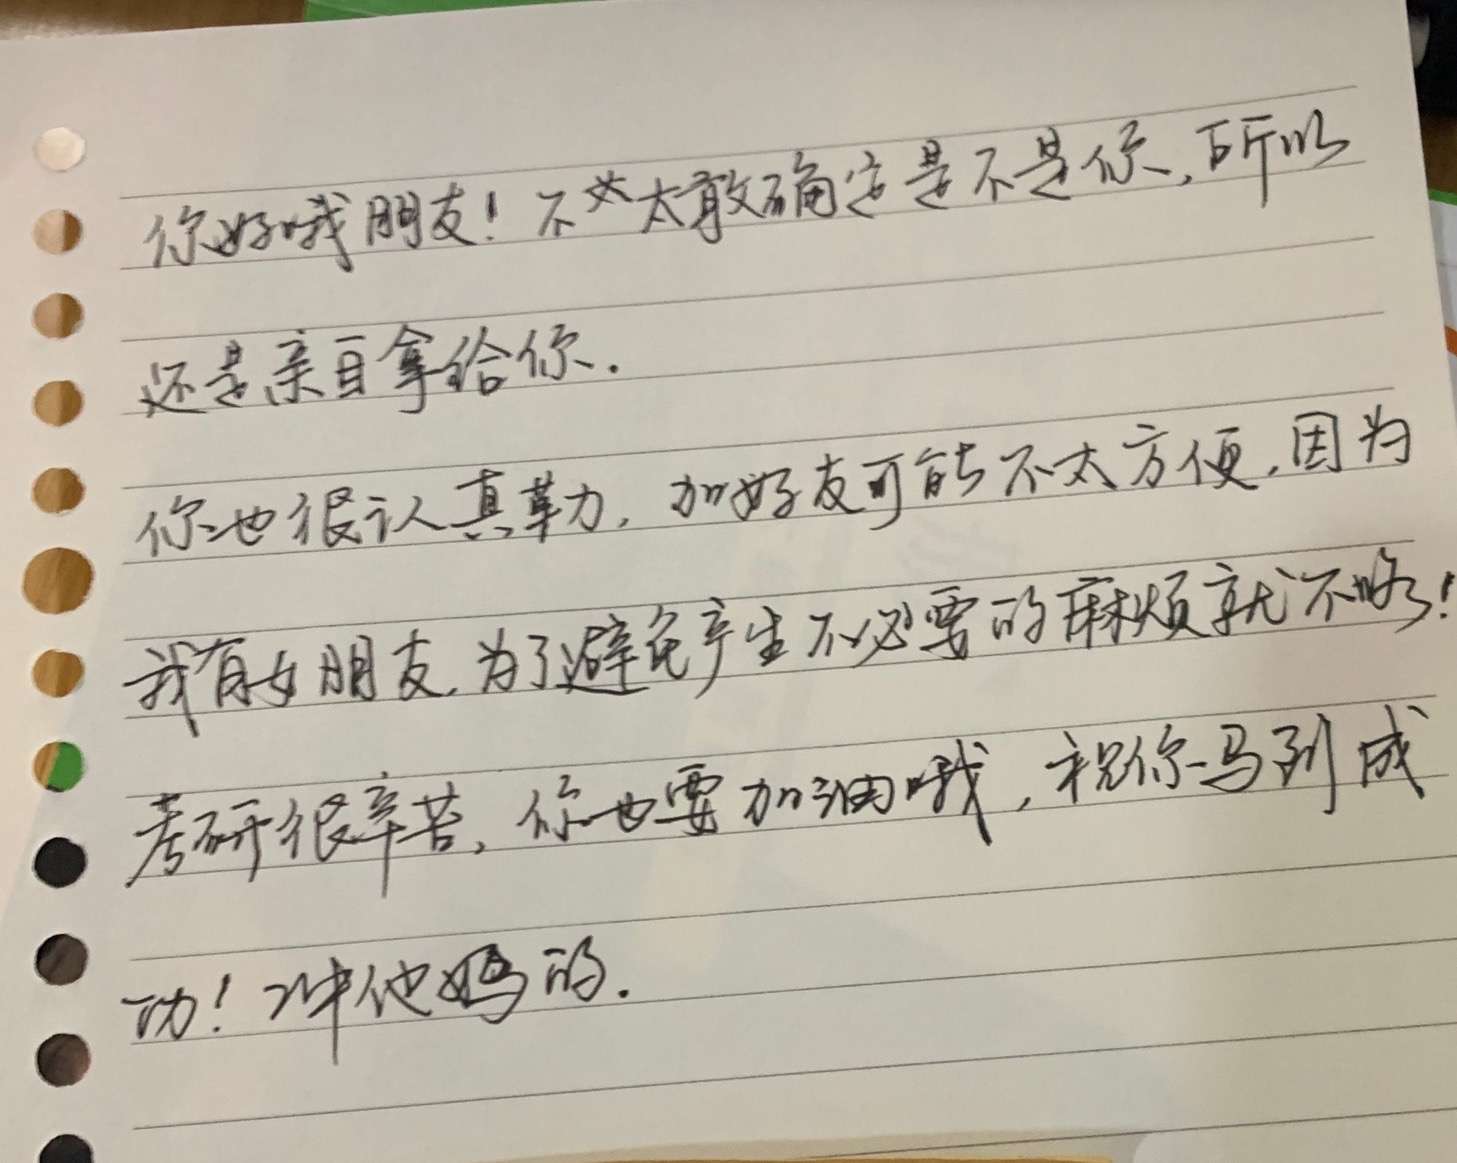 你好哦朋友！不太敢确定是不是你，所以
还是亲自拿给你.
你也很认真努力，加好友可能不太方便，因为
我有女朋友，为了避免产生不必要的麻烦就不咯！
考研很辛苦，你也要加油哦，祝你马到成
功！冲他妈的.